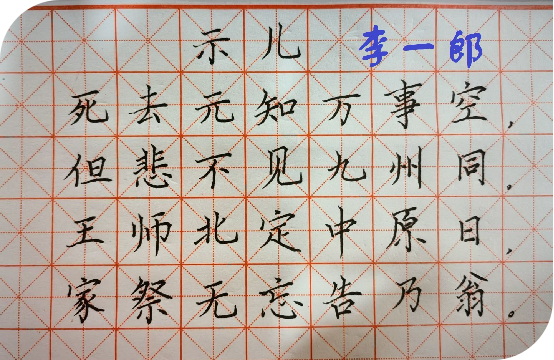 示儿 李一郎
死去元知万事空，
但悲不见九州同。
王师北定中原日，
家祭无忘告乃翁。